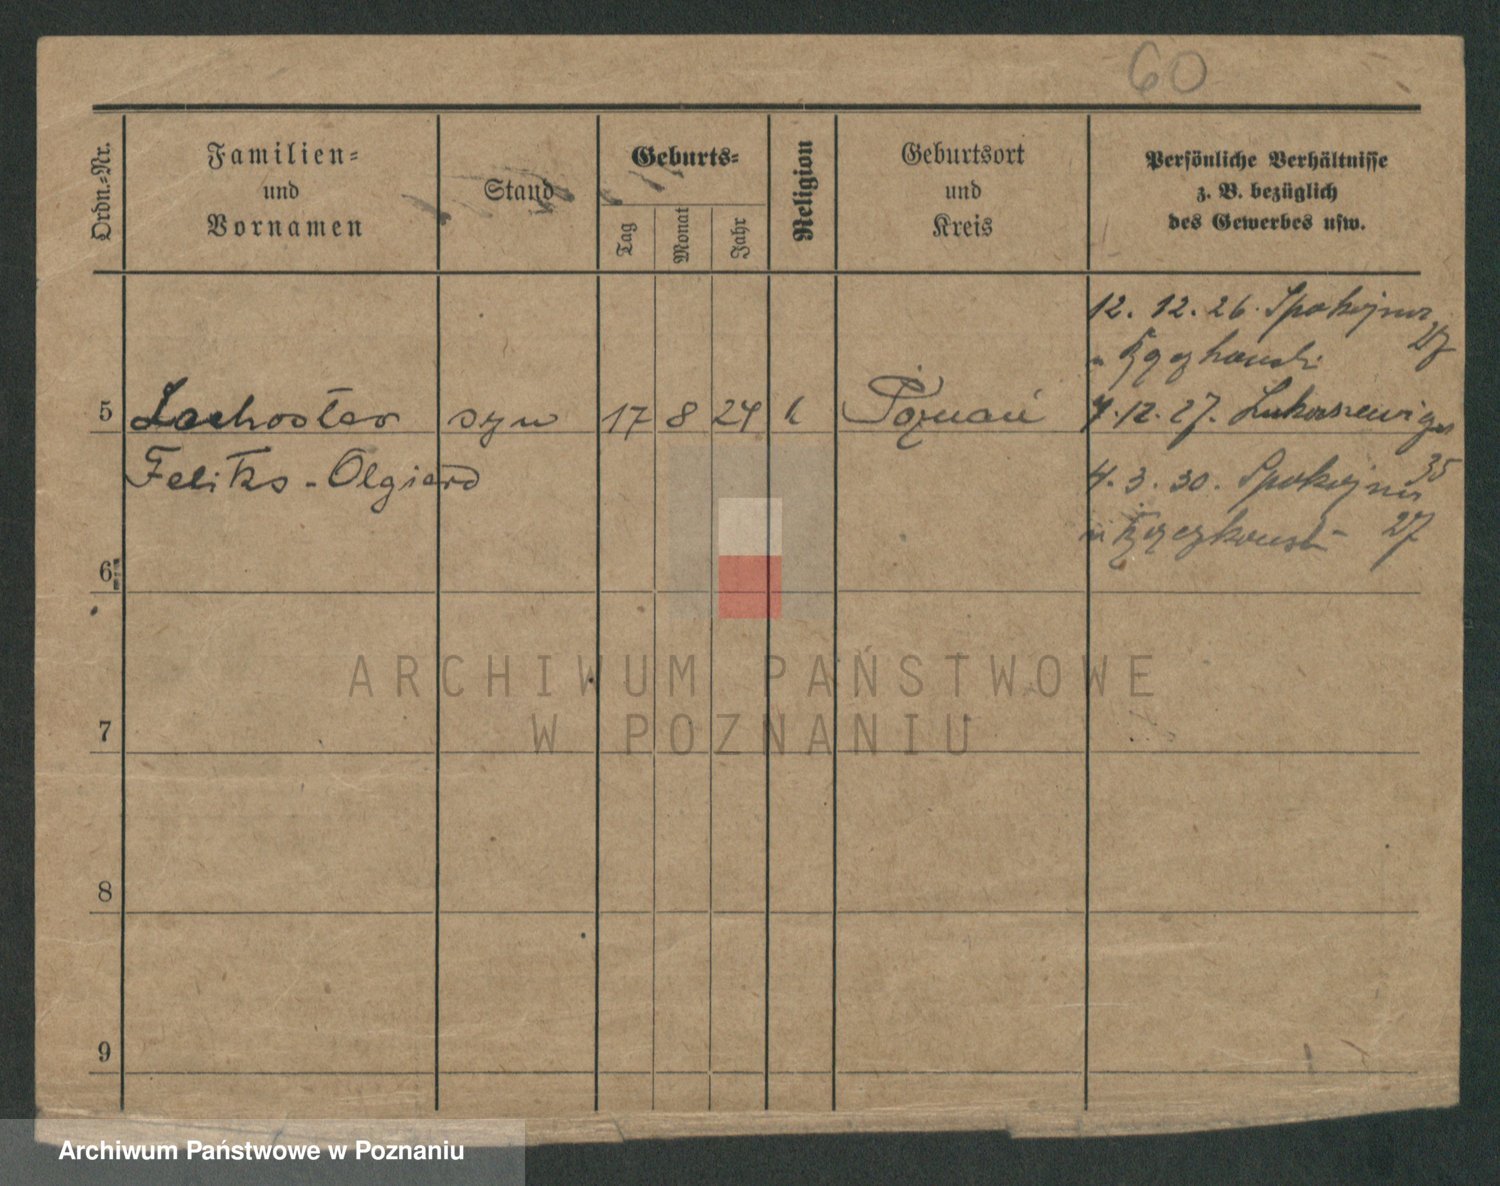 60
Ordn.-Nr.
Familien-
und
Vornamen
Stand
Geburts-
Tag
Monat
Jahr
Religion
Geburtsort
und
Kreis
Persönliche Verhältnisse
z. B. bezüglich
des Gewerbes usw.
12. 12. 26. Spokojna
27
5 syn 17 8 24 k Poznań 7.12.27.
Feliks-Olgierd
35
4.3.30. Spokojna
27
6
7
8
9
ARCHIWUM PAŃSTWOWE
W POZNANIU
Archiwum Państwowe w Poznaniu